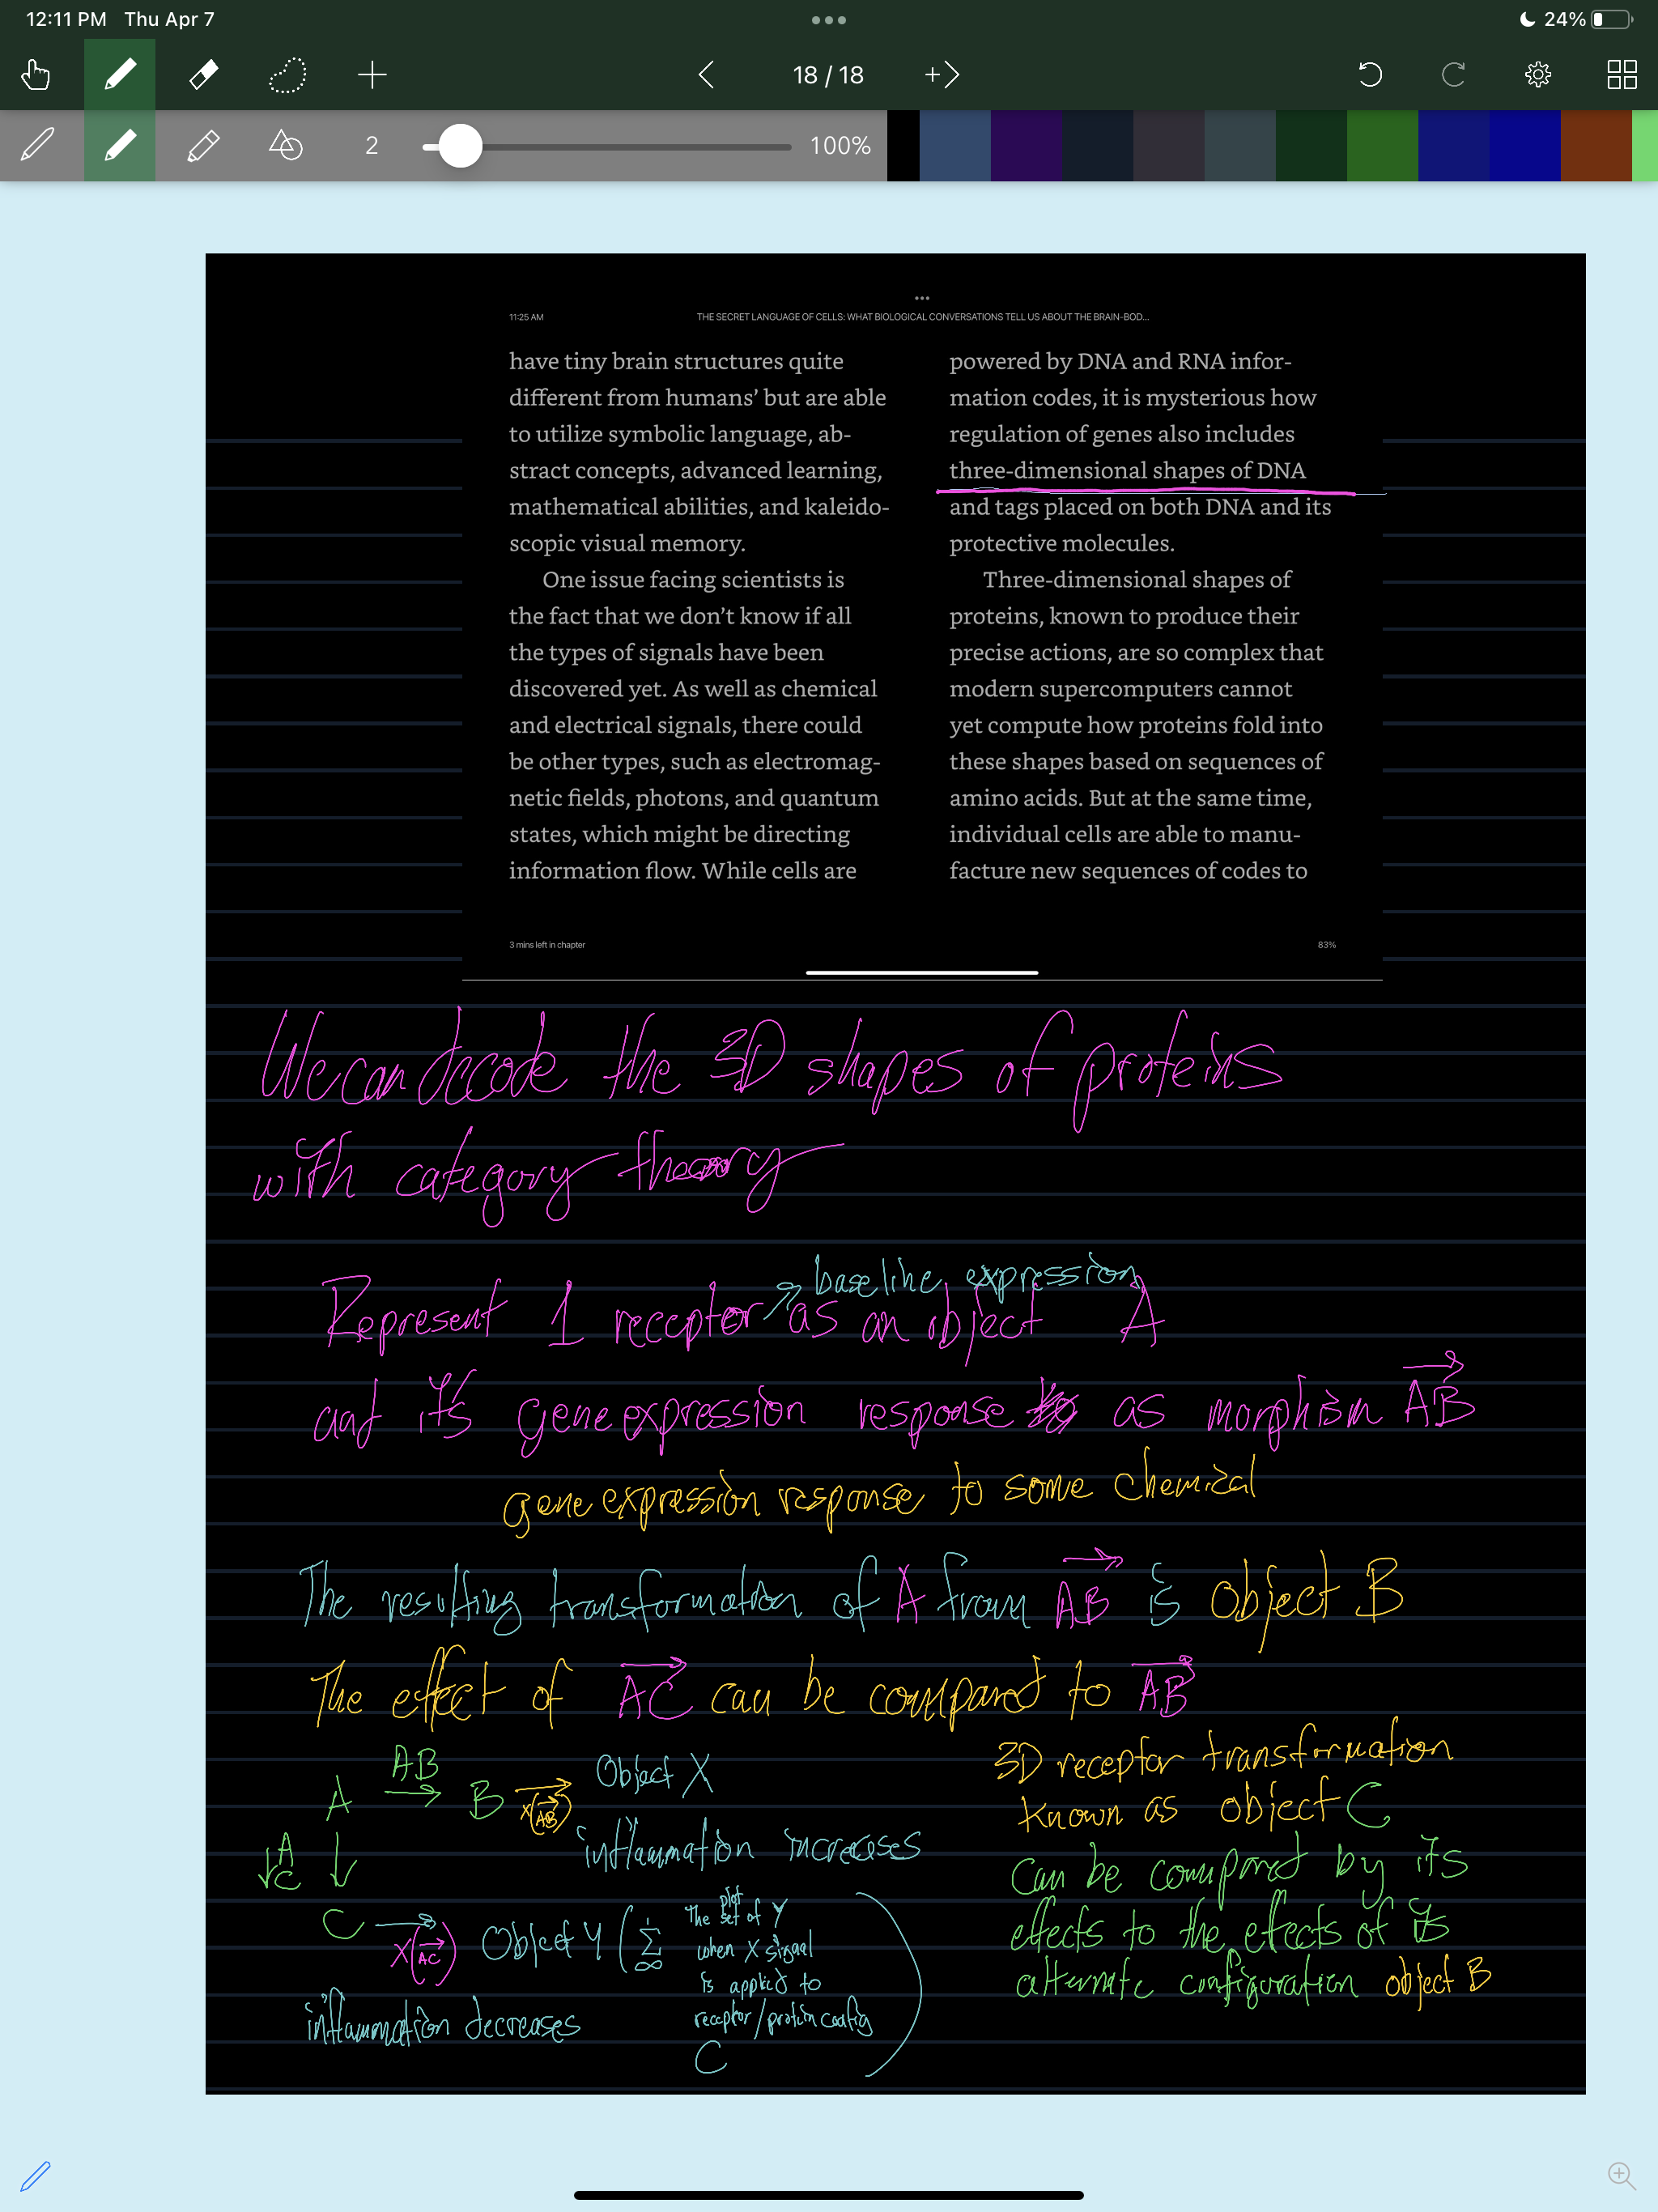 12:11 PM Thu Apr 7
24%
18 / 18
2
100%
11:25 AM
THE SECRET LANGUAGE OF CELLS: WHAT BIOLOGICAL CONVERSATIONS TELL US ABOUT THE BRAIN-BOD...
have tiny brain structures quite
different from humans’ but are able
to utilize symbolic language, ab-
stract concepts, advanced learning,
mathematical abilities, and kaleido-
scopic visual memory.
One issue facing scientists is
the fact that we don’t know if all
the types of signals have been
discovered yet. As well as chemical
and electrical signals, there could
be other types, such as electromag-
netic fields, photons, and quantum
states, which might be directing
information flow. While cells are
powered by DNA and RNA infor-
mation codes, it is mysterious how
regulation of genes also includes
three-dimensional shapes of DNA
and tags placed on both DNA and its
protective molecules.
Three-dimensional shapes of
proteins, known to produce their
precise actions, are so complex that
modern supercomputers cannot
yet compute how proteins fold into
these shapes based on sequences of
amino acids. But at the same time,
individual cells are able to manu-
facture new sequences of codes to
3 mins left in chapter
83%
We can decode the 3D shapes of proteins
with category theory
baseline expression
Represent 1 receptor as an object A
and it's gene expression response as morphism AB
gene expression response to some chemical
The resulting transformation of A from AB is object B
The effect of AC can be compared to AB
AB
A → B X(AB) Object X
inflammation increases
AC ↓
C X(AC) Object Y ( Σ ∞
The plot set of Y
when X signal
is applied to
receptor/protein config
C )
inflammation decreases
3D receptor transformation
known as object C
Can be compared by its
effects to the effects of its
alternate configuration object B